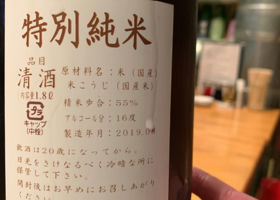 特別純米
品目
清酒
内容量1.8ℓ
原材料名：米（国産）
米こうじ（国産米）
精米歩合：55%
アルコール分：16度
製造年月：2019.0
プラ
キャップ
（中栓）
飲酒は20歳になってから。
日光をさけなるべく冷暗な所に
保管して下さい。
開封後はお早めにお召しあがり
ください